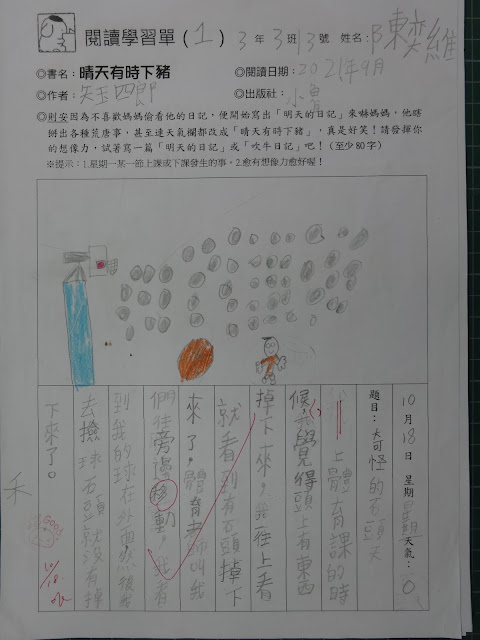 閱讀學習單(1) 3年3班13號 姓名:陳奕維
◎書名:晴天有時下豬 ◎閱讀日期:2021年9月
◎作者:矢玉四郎 ◎出版社:小魯
◎則安因為不喜歡媽媽偷看他的日記,便開始寫出「明天的日記」來嚇媽媽,他瞎
掰出各種荒唐事,甚至連天氣欄都改成「晴天有時下豬」,真是好笑!請發揮你
的想像力,試著寫一篇「明天的日記」或「吹牛日記」吧!(至少80字)
※提示:1.星期一某一節上課或下課發生的事。2.愈有想像力愈好喔!
10月18日 星期 天氣:
題目:奇怪的石頭天
上體育課的時
候,我覺得頭上有東西
掉下來,我往上看
就看到有石頭掉下
來了,體育老師叫我
們往旁邊移動,我看
到我的球在外面,然後我
去撿球石頭就沒有掉
下來了。
禾
Good
10/18